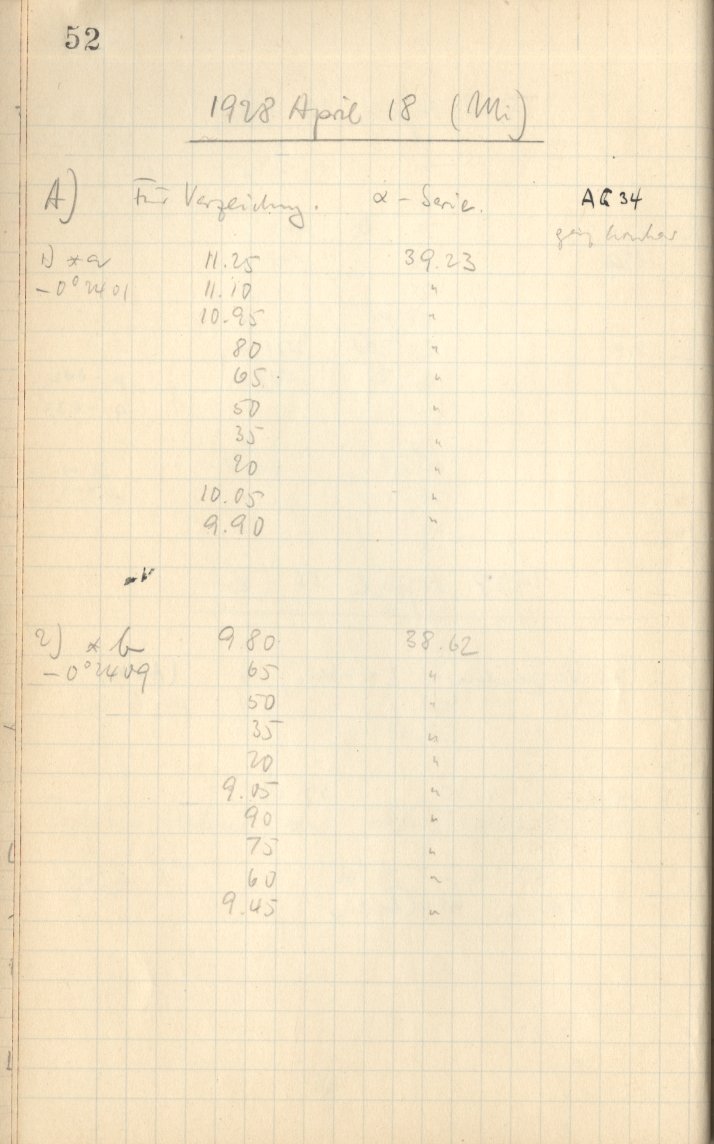 52
1928 April 18 (Mi)
A) Für Verzeichnung. α-Serie. AG 34
1) *a 11.25 39.23
-0°2401 11.10 "
10.95 "
80 "
65 "
50 "
35 "
20 "
10.05 "
9.90 "
2) *b 9.80 38.62
-0°2409 65 "
50 "
35 "
20 "
9.05 "
90 "
75 "
60 "
9.45 "